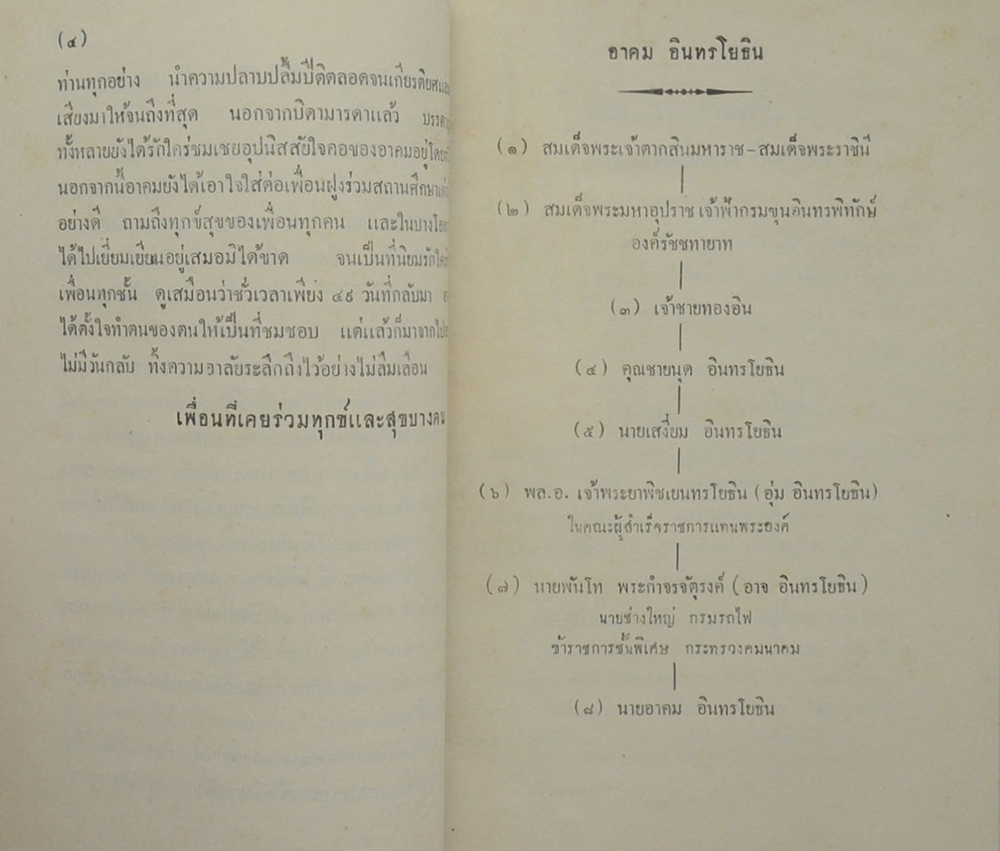 (๔)
ท่านทุกอย่าง นำความปลาบปลื้มปีติตลอดจนเกียรติยศและ
เสียงมาให้จนถึงที่สุด นอกจากบิดามารดาแล้ว
ทั้งหลายยังได้รักใคร่ชมเชยอุปนิสสัยใจคอของอาคมอยู่
นอกจากนี้อาคมยังได้เอาใจใส่ต่อเพื่อนฝูงร่วมสถานศึกษา
อย่างดี ถามถึงทุกข์สุขของเพื่อนทุกคน และในบาง
ได้ไปเยี่ยมเยียนอยู่เสมอมิได้ขาด จนเป็นที่นิยม
เพื่อนทุกชั้น ดูเสมือนว่าชั่วเวลาเพียง ๔๙ วันที่กลับมา
ได้ตั้งใจทำตนของตนให้เป็นที่ชมชอบ แต่แล้วก็มาจาก
ไม่มีวันกลับ ทิ้งความอาลัยระลึกถึงไว้อย่างไม่ลืมเลือน
เพื่อนที่เคยร่วมทุกข์และสุขบางคน
อาคม อินทรโยธิน
(๑) สมเด็จพระเจ้าตากสินมหาราช-สมเด็จพระราชินี
(๒) สมเด็จพระมหาอุปราช เจ้าฟ้ากรมขุนอินทรพิทักษ์
องค์รัชชทายาท
(๓) เจ้าชายทองอิน
(๔) คุณชายนุด อินทรโยธิน
(๕) นายเสงี่ยม อินทรโยธิน
(๖) พล.อ. เจ้าพระยาพิชเยนทรโยธิน (อุ่ม อินทรโยธิน)
ในคณะผู้สำเร็จราชการแทนพระองค์
(๗) นายพันโท พระกำจรจัตุรงค์ (อาจ อินทรโยธิน)
นายช่างใหญ่ กรมรถไฟ
ข้าราชการชั้นพิเศษ กระทรวงคมนาคม
(๘) นายอาคม อินทรโยธิน